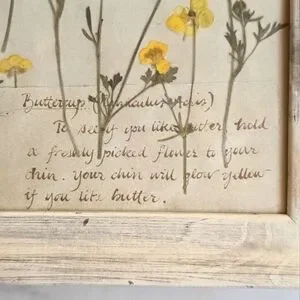 Buttercup. (Ranunculus Acris)
To see if you like butter, hold
a freshly picked flower to your
chin. Your chin will glow yellow
if you like butter.